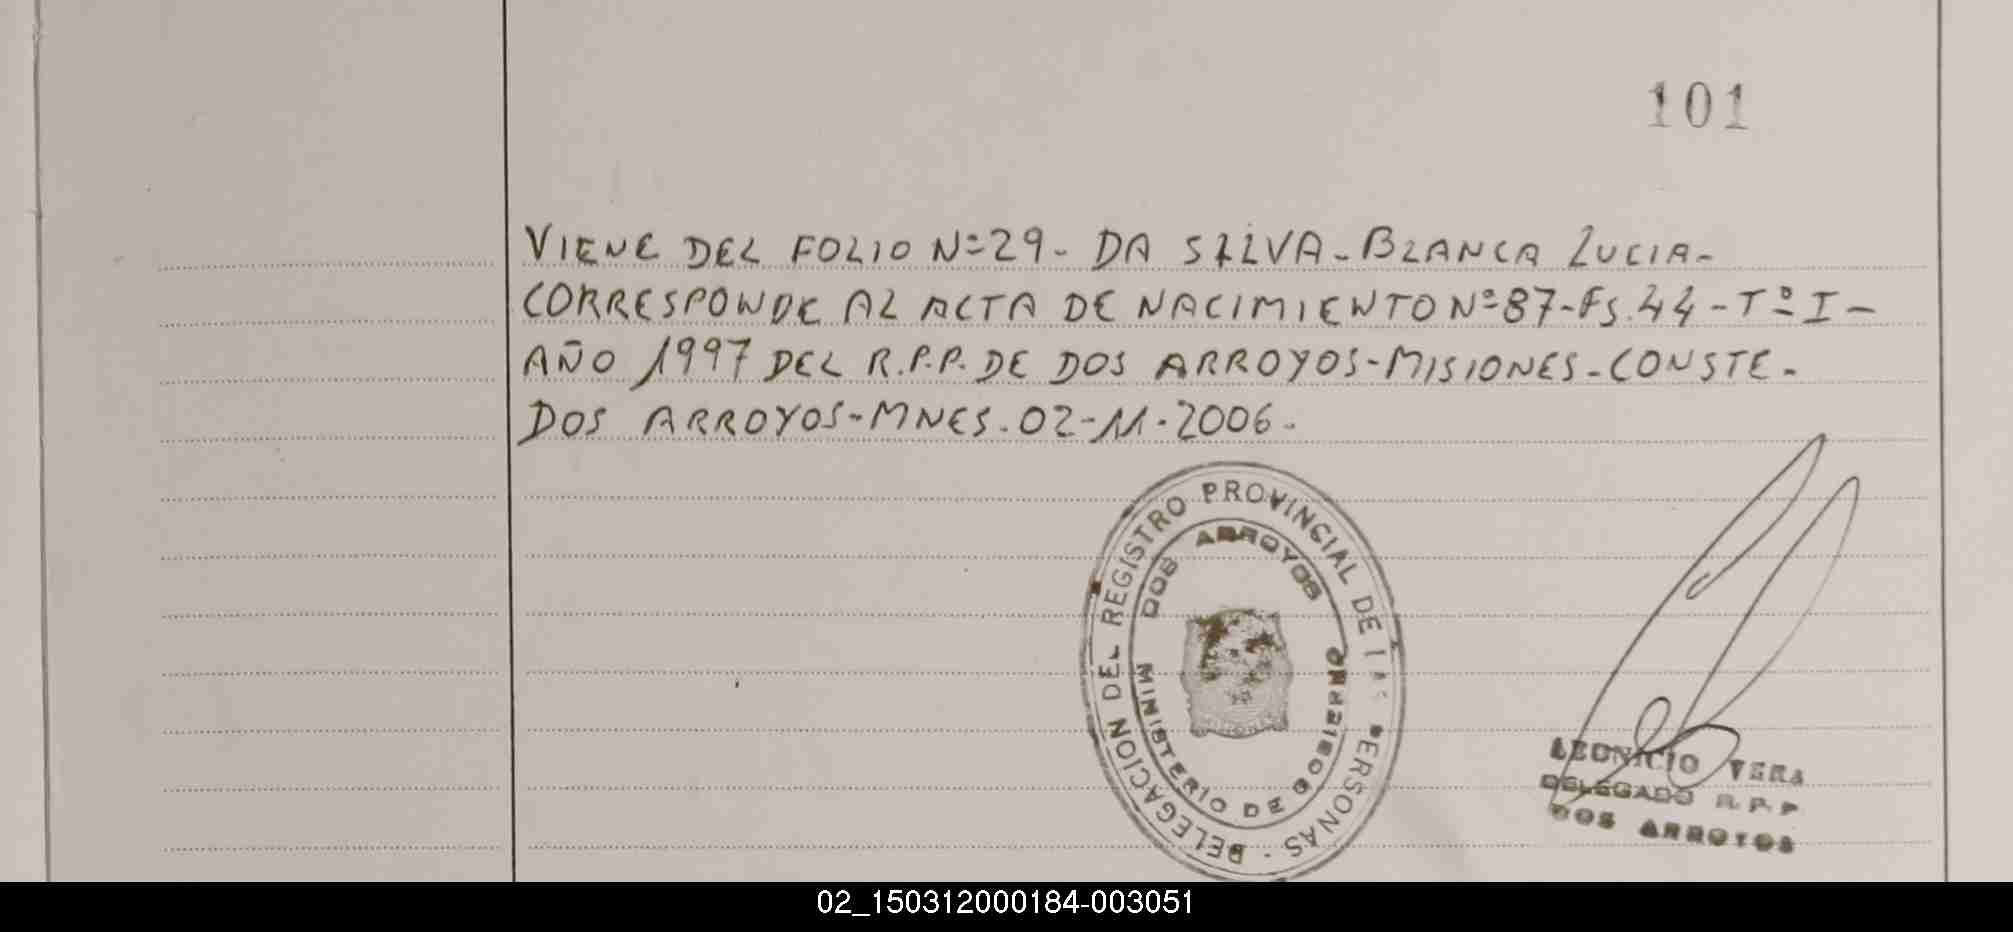 101
VIENE DEL FOLIO Nº29- DA SILVA-BLANCA LUCIA-
CORRESPONDE AL ACTA DE NACIMIENTO Nº87-Fs.44-Tº I-
AÑO 1997 DEL R.P.P. DE DOS ARROYOS-MISIONES-CONSTE-
DOS ARROYOS-MNES.02-11-2006-
DELEGACION DEL REGISTRO PROVINCIAL DE LAS PERSONAS
DOS ARROYOS
MINISTERIO DE GOBIERNO
LEONICIO VERA
DELEGADO R.P.P
DOS ARROYOS
02_150312000184-003051